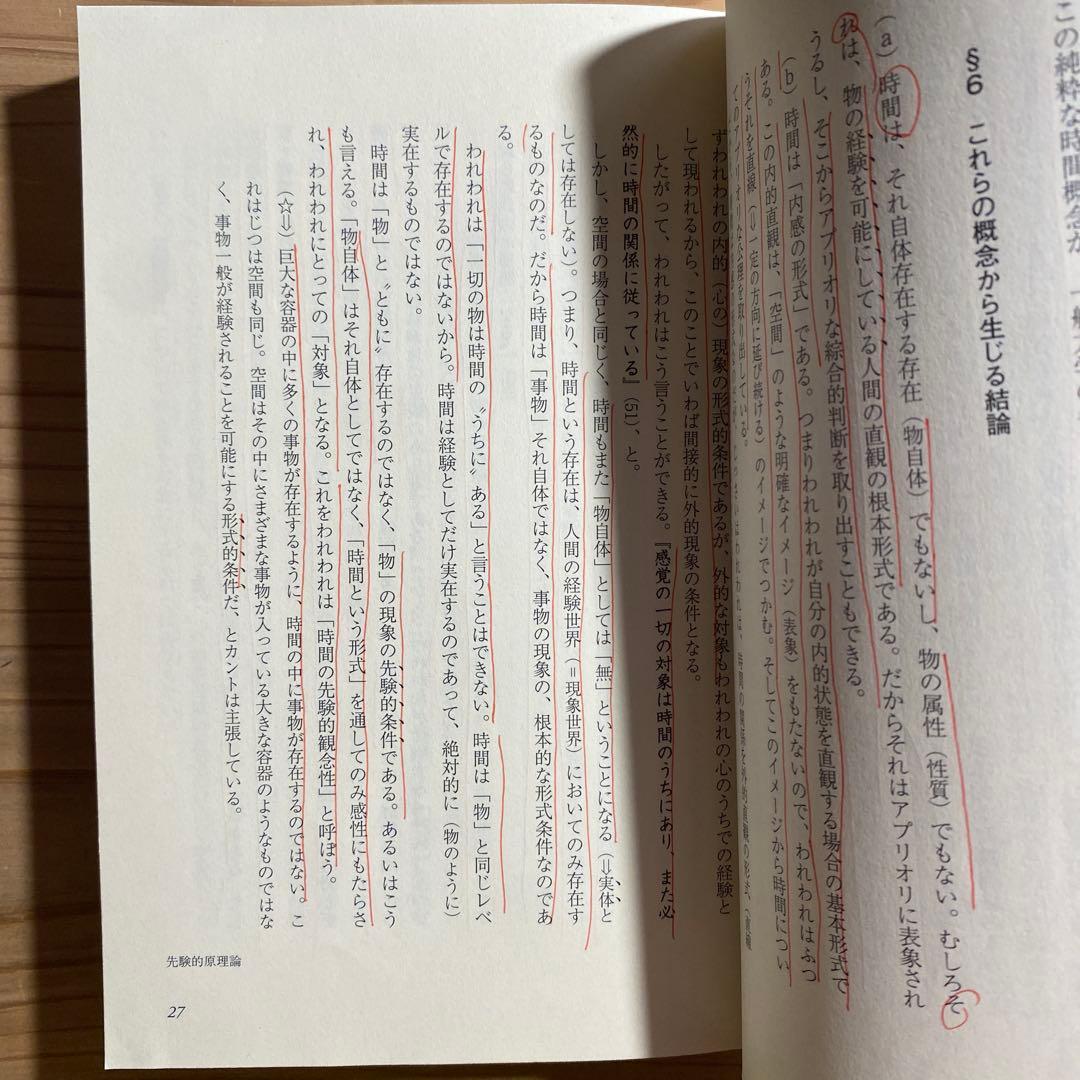 この純粋な時間概念が、一般
§6 これらの概念から生じる結論
(a) 時間は、それ自体存在する存在(物自体)でもないし、物の属性(性質)でもない。むしろそ
れは、物の経験を可能にしている人間の直観の根本形式である。だからそれはアプリオリに表象され
うるし、そこからアプリオリな綜合的判断を取り出すこともできる。
(b) 時間は「内感の形式」である。つまりわれわれが自分の内的状態を直観する場合の基本形式で
ある。この内的直観は、「空間」のような明確なイメージ(表象)をもたないので、われわれはふつ
うそれを直線(⇒一定の方向に延び続ける)のイメージでつかむ。そしてこのイメージから時間につい
てのアプリオリな公理を取り出している。
ずわれわれの内的(心の)現象の形式的条件であるが、外的な対象もわれわれの心のうちでの経験と
して現われるから、このことでいわば間接的に外的現象の条件となる。
したがって、われわれはこう言うことができる。『感覚の一切の対象は時間のうちにあり、また必
然的に時間の関係に従っている』(51)、と。
しかし、空間の場合と同じく、時間もまた「物自体」としては「無」ということになる(⇓実体と
しては存在しない)。つまり、時間という存在は、人間の経験世界(=現象世界)においてのみ存在す
るものなのだ。だから時間は「事物」それ自体ではなく、事物の現象の、根本的な形式条件なのであ
る。
われわれは「一切の物は時間の〝うちに〟ある」と言うことはできない。時間は「物」と同じレベ
ルで存在するのではないから。時間は経験としてだけ実在するのであって、絶対的に(物のように)
実在するものではない。
時間は「物」と〝ともに〟存在するのではなく、「物」の現象の先験的条件である。あるいはこう
も言える。「物自体」はそれ自体としてではなく、「時間という形式」を通してのみ感性にもたらさ
れ、われわれにとっての「対象」となる。これをわれわれは「時間の先験的観念性」と呼ぼう。
(☆⇓)巨大な容器の中に多くの事物が存在するように、時間の中に事物が存在するのではない。こ
れはじつは空間も同じ。空間はその中にさまざまな事物が入っている大きな容器のようなものではな
く、事物一般が経験されることを可能にする形式的条件だ、とカントは主張している。
先験的原理論
27